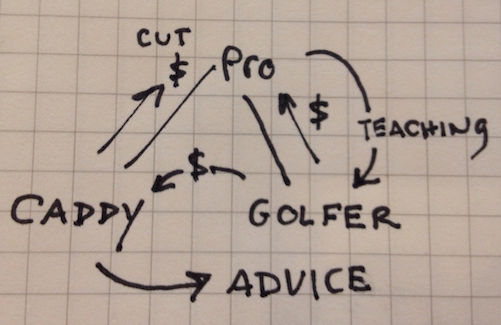 CUT
$ Pro
$
TEACHING
$
CADDY GOLFER
ADVICE